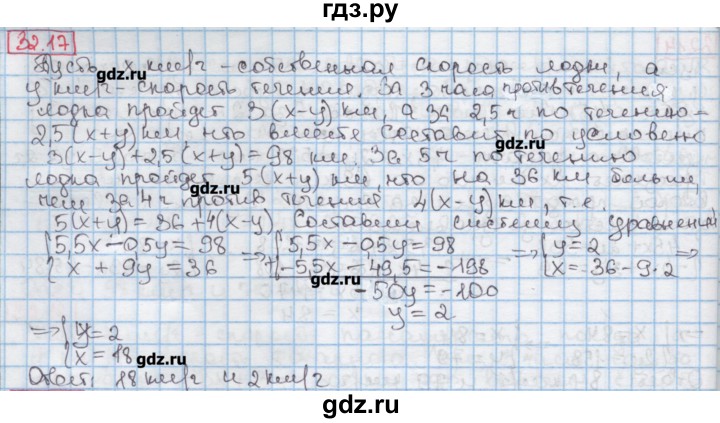 гдз.ру
32.17
Пусть x км/г - собственная скорость лодки, а
y км/г - скорость течения. За 3 часа против течения
лодка пройдет 3(x-y) км, а за 2,5 ч по течению -
2,5(x+y) км, что вместе составит по условию
3(x-y)+2,5(x+y)=98 км. За 5 ч по течению
лодка пройдет 5(x+y) км, что на 36 км больше,
чем за 4 ч против течения 4(x-y) км, т.е.
5(x+y)=36+4(x-y). Составим систему уравнений
{5,5x-0,5y=98 => {5,5x-0,5y=98 => {y=2 =>
{x + 9y = 36 +{-5,5x-49,5=-198 {x=36-9·2
-50y=-100
y=2
=> {y=2
{x=18
Ответ: 18 км/г и 2 км/г
gdz.ru
gdz.ru
gdz.ru
gdz.ru
gdz.ru
gdz.ru
gdz.ru